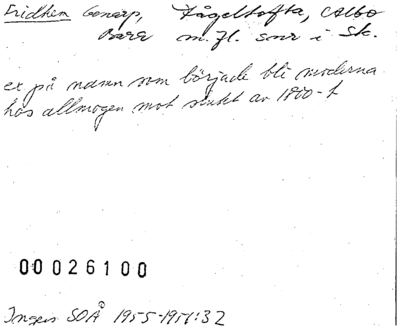 Fridhem Genarp, Fågeltofta, Albo
Bara m.fl. snr i Sk.
ex på namn som började bli moderna
hos allmogen mot slutet av 1800-t
00026100
Ingers SOÅ 1955-1956:32